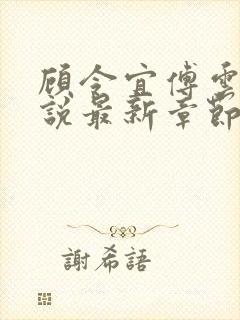 顾令宜傅雲
說最新章節
謝希語